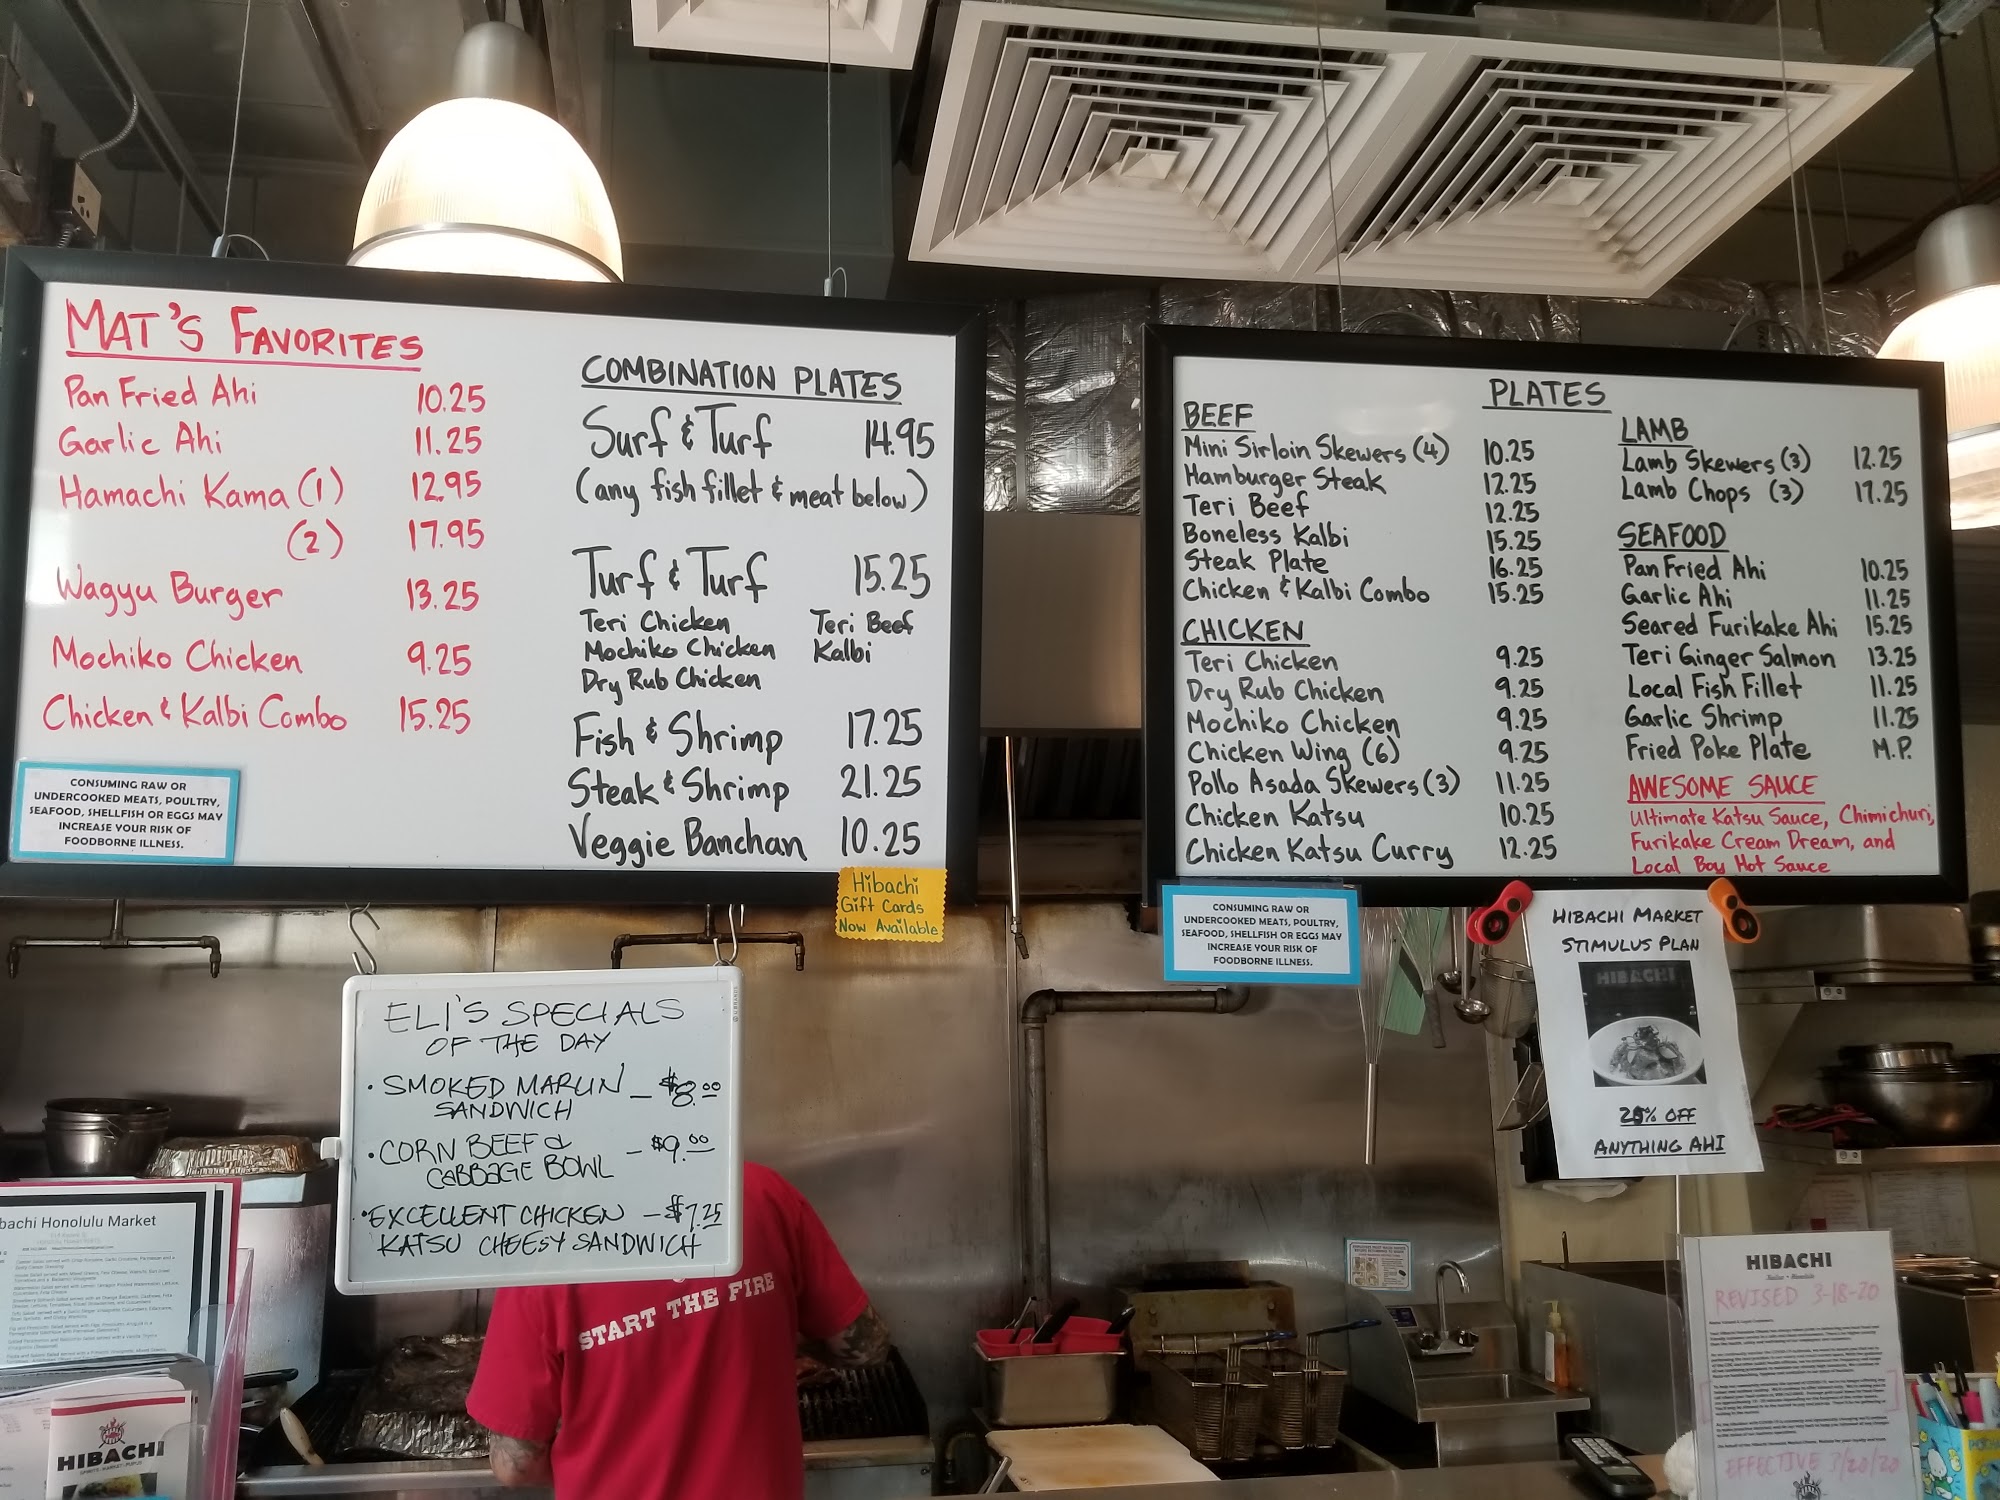 MAT'S FAVORITES
Pan Fried Ahi 10.25
Garlic Ahi 11.25
Hamachi Kama (1) 12.95
(2) 17.95
Wagyu Burger 13.25
Mochiko Chicken 9.25
Chicken & Kalbi Combo 15.25
CONSUMING RAW OR
UNDERCOOKED MEATS, POULTRY,
SEAFOOD, SHELLFISH OR EGGS MAY
INCREASE YOUR RISK OF
FOODBORNE ILLNESS.
COMBINATION PLATES
Surf & Turf 14.95
(any fish fillet & meat below)
Turf & Turf 15.25
Teri Chicken Teri Beef
Mochiko Chicken Kalbi
Dry Rub Chicken
Fish & Shrimp 17.25
Steak & Shrimp 21.25
Veggie Banchan 10.25
Hibachi
Gift Cards
Now Available
PLATES
BEEF
Mini Sirloin Skewers (4) 10.25
Hamburger Steak 12.25
Teri Beef 12.25
Boneless Kalbi 15.25
Steak Plate 16.25
Chicken & Kalbi Combo 15.25
CHICKEN
Teri Chicken 9.25
Dry Rub Chicken 9.25
Mochiko Chicken 9.25
Chicken Wing (6) 9.25
Pollo Asada Skewers (3) 11.25
Chicken Katsu 10.25
Chicken Katsu Curry 12.25
LAMB
Lamb Skewers (3) 12.25
Lamb Chops (3) 17.25
SEAFOOD
Pan Fried Ahi 10.25
Garlic Ahi 11.25
Seared Furikake Ahi 15.25
Teri Ginger Salmon 13.25
Local Fish Fillet 11.25
Garlic Shrimp 11.25
Fried Poke Plate M.P.
AWESOME SAUCE
Ultimate Katsu Sauce, Chimichuri,
Furikake Cream Dream, and
Local Boy Hot Sauce
CONSUMING RAW OR
UNDERCOOKED MEATS, POULTRY,
SEAFOOD, SHELLFISH OR EGGS MAY
INCREASE YOUR RISK OF
FOODBORNE ILLNESS.
HIBACHI MARKET
STIMULUS PLAN
HIBACHI
% OFF
ANYTHING AHI
ELI'S SPECIALS
OF THE DAY
• SMOKED MARLIN — $8.00
SANDWICH
• CORN BEEF &
CABBAGE BOWL — $9.00
• EXCELLENT CHICKEN — $7.25
KATSU CHEESY SANDWICH
START THE FIRE
bachi Honolulu Market
HIBACHI
HIBACHI
REVISED 3-18-20
EFFECTIVE 3/20/20